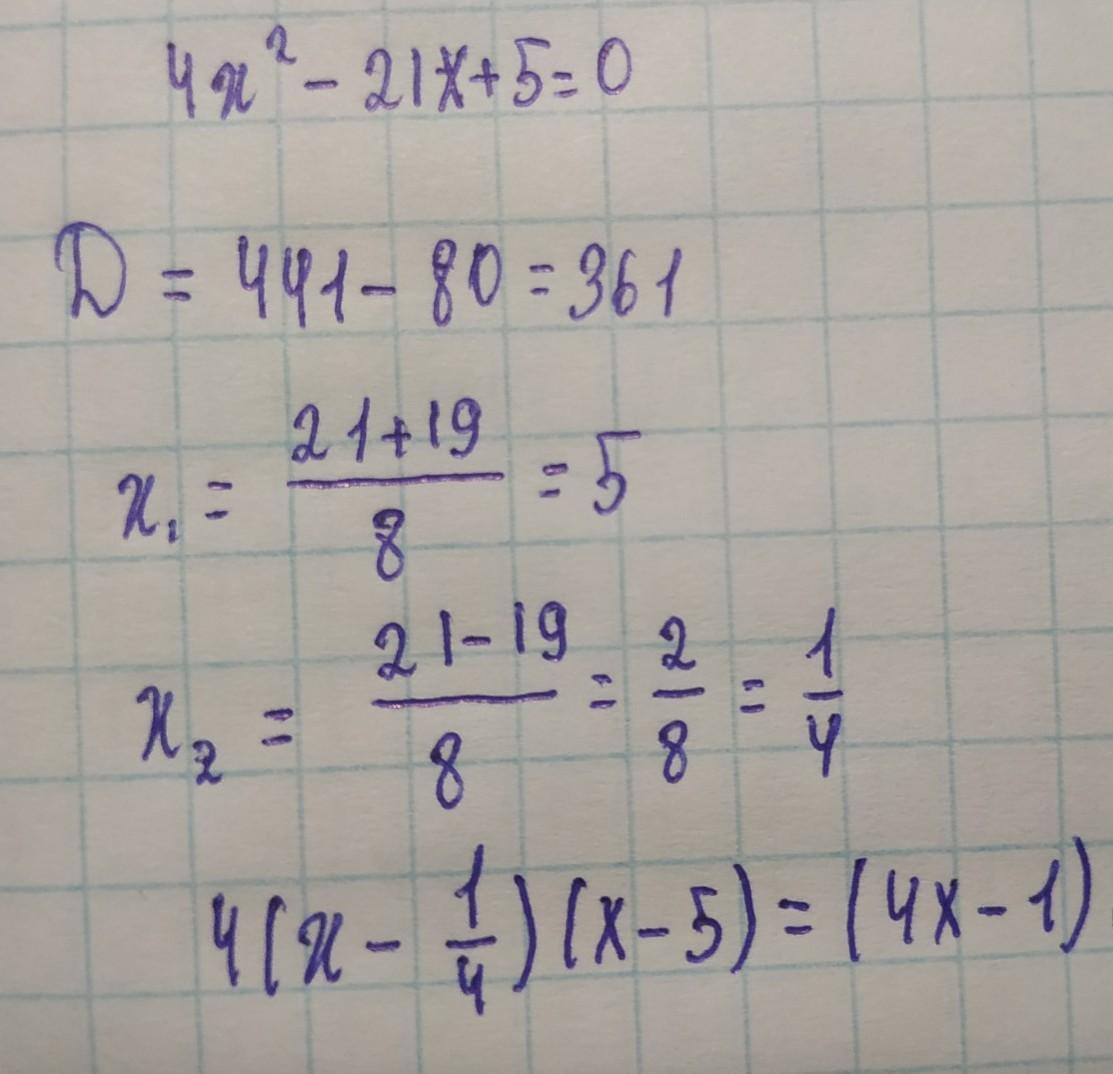 4x² - 21x + 5 = 0
D = 441 - 80 = 361
x₁ = (21+19)/8 = 5
x₂ = (21-19)/8 = 2/8 = 1/4
4(x - 1/4)(x - 5) = (4x - 1)